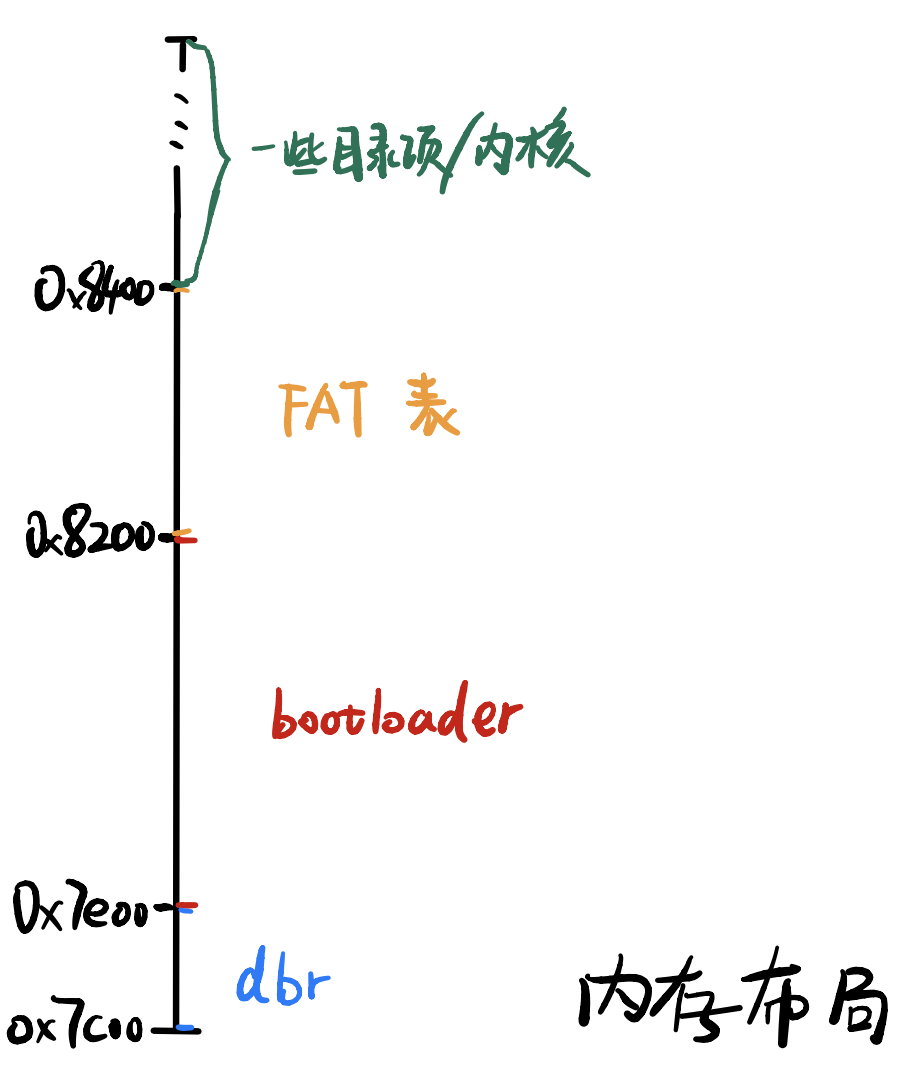 一些目录项/内核
0x8400
FAT 表
0x8200
bootloader
0x7e00
dbr
0x7c00
内存布局